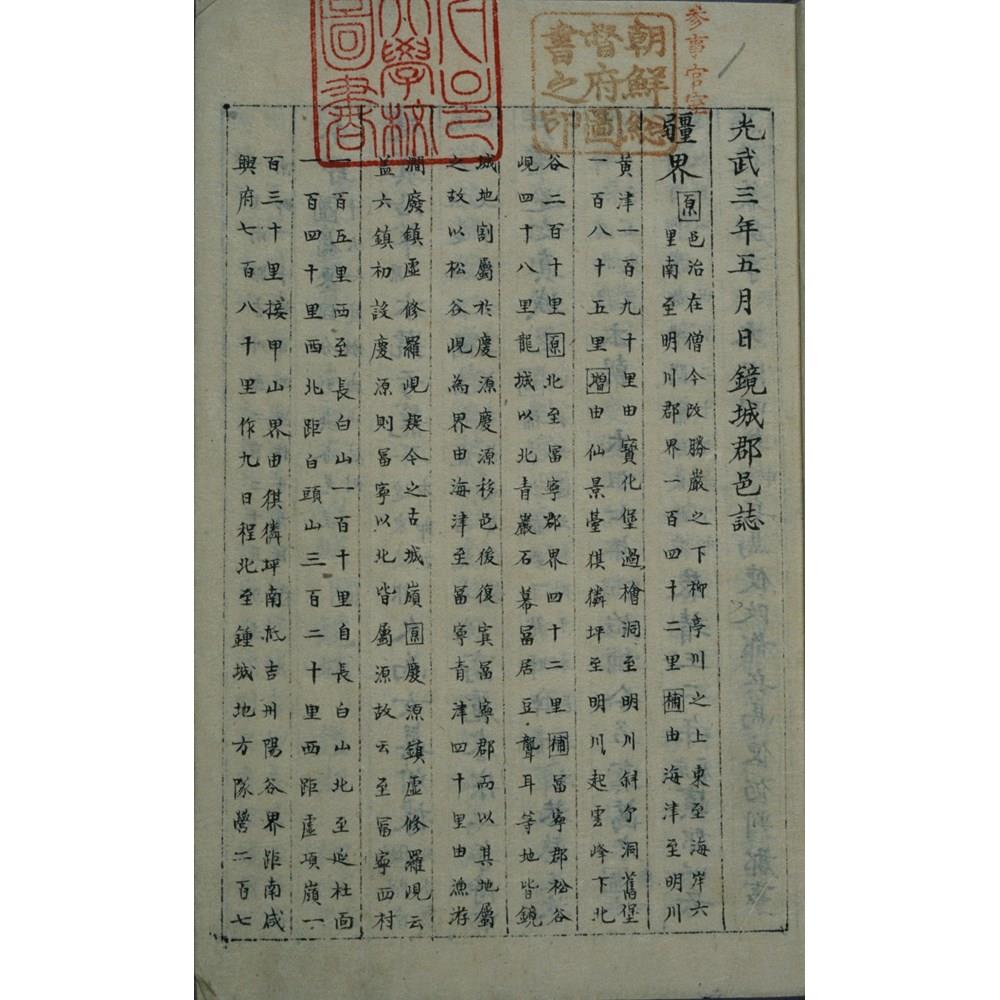 參事官室
朝鮮總
督府圖
書之印
大學校
圖書
光武三年五月日鏡城郡邑誌
疆界原邑治在僧今改勝巖之下柳亭川之上東至海岸六
里南至明川郡界一百四十二里補由海津至明川
黃津一百九十里由寶化堡過檜洞至明川斜分洞舊堡
一百八十五里增由仙景臺棋獜坪至明川起雲峰下北
谷二百十里原北至富寧郡界四十二里補富寧郡松谷
峴四十八里龍城以北青巖石幕富居豆聾耳等地皆鏡
城地割屬於慶源慶源移邑後復寘富寧郡而以其地屬
之故以松谷峴為界由海津至富寧青津四十里由漁游
澗廢鎮虛修羅峴疑今之古城嶺原慶源鎮虛修羅峴云
盖六鎮初設慶源則富寧以北皆屬源故云至富寧西村
一百五里西至長白山一百十里自長白山北至延杜面
一百四十里西北距白頭山三百二十里西距虛項嶺一
百三十里接甲山界由棋獜坪南袛吉州陽谷界距南咸
興府七百八千里作九日程北至鍾城地方隊營二百七